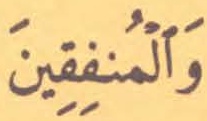 وَٱلْمُنفِقِينَ